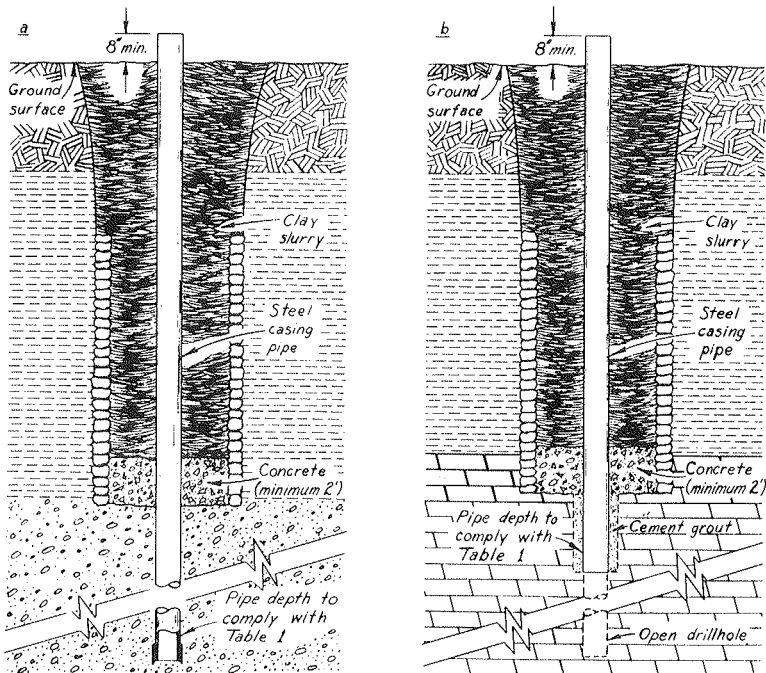 a
8" min.
Ground
surface
Clay
slurry
Steel
casing
pipe
Concrete
(minimum 2')
Pipe depth to
comply with
Table 1
b
8" min.
Ground
surface
Clay
slurry
Steel
casing
pipe
Concrete
(minimum 2')
Pipe depth to
comply with
Table 1
Cement grout
Open drillhole